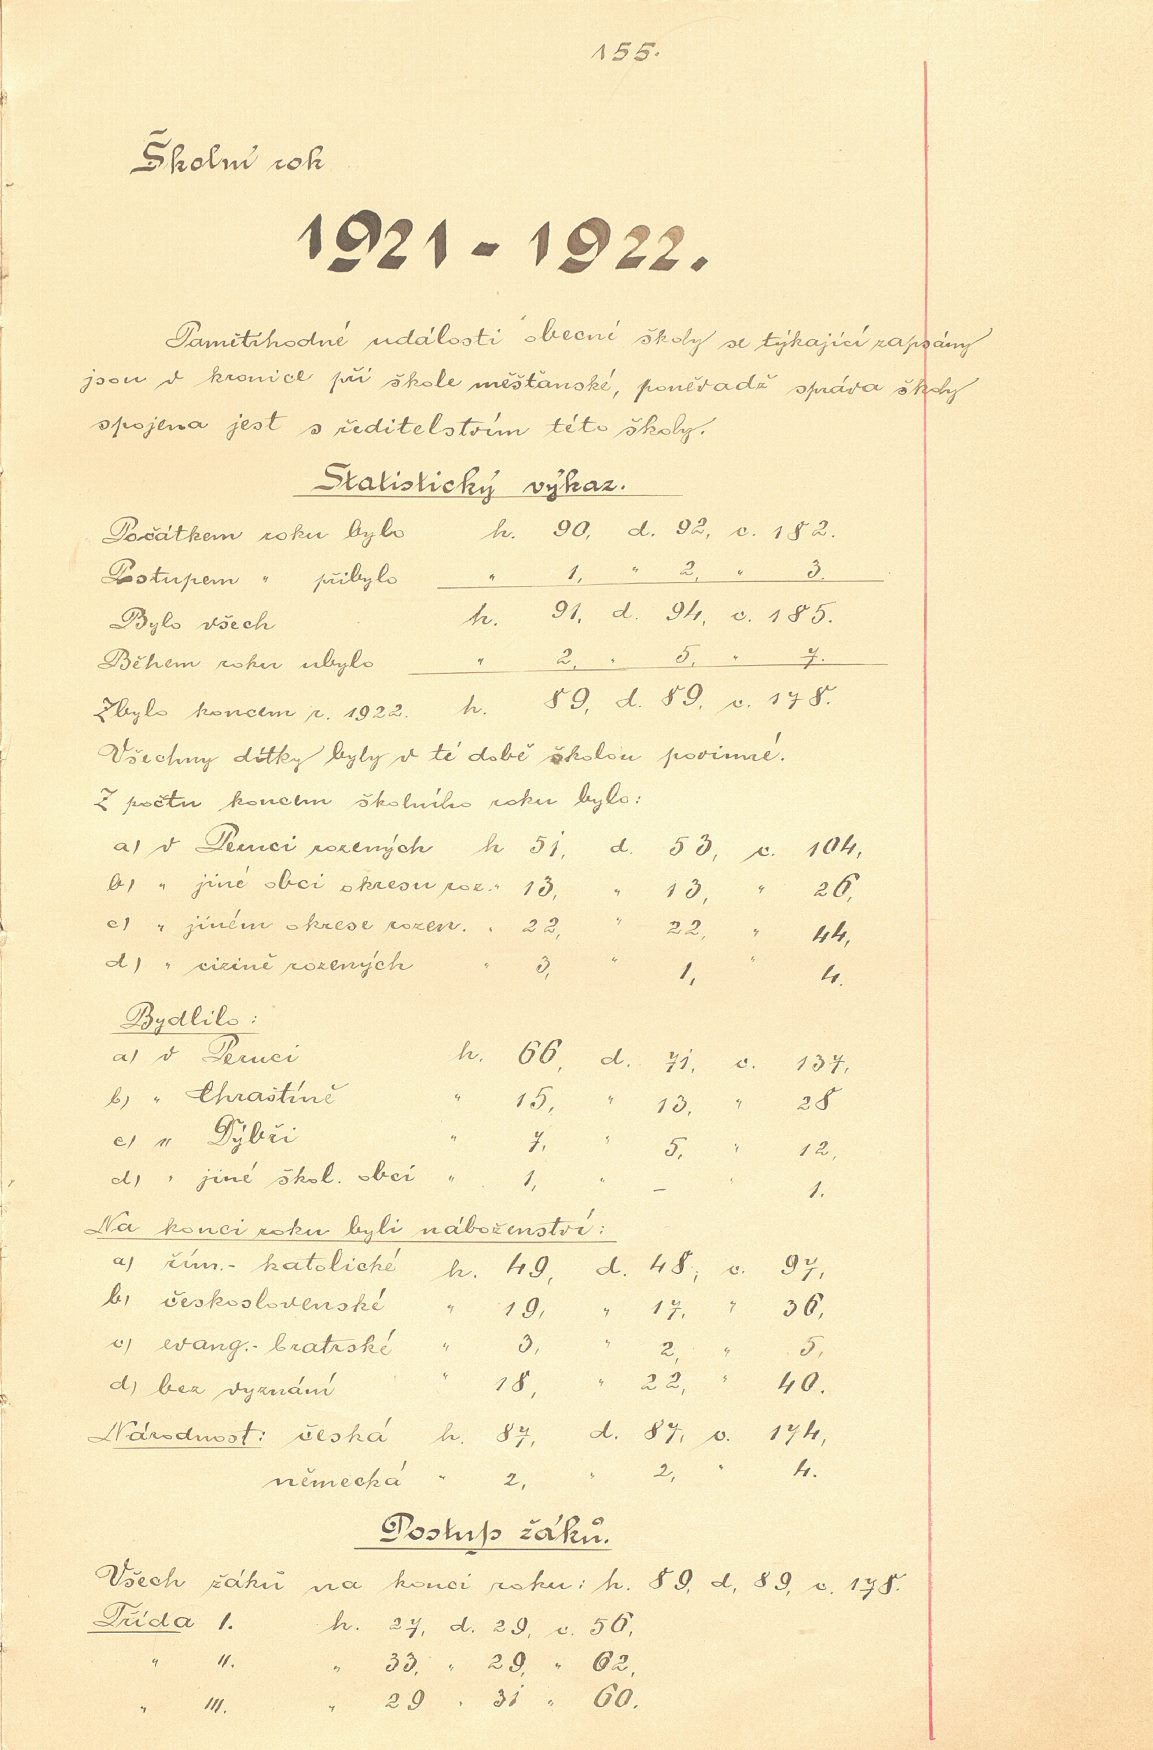 155.
Školní rok
1921 - 1922.
Pamětihodné události obecné školy se týkající zapsány
jsou v kronice při škole měšťanské, poněvadž správa školy
spojena jest s ředitelstvím této školy.
Statistický výkaz.
Počátkem roku bylo h. 90, d. 92, c. 182.
Postupem " přibylo " 1, " 2, " 3.
Bylo všech h. 91, d. 94, c. 185.
Během roku ubylo " 2, " 5, " 7.
Zbylo koncem r. 1922. h. 89, d. 89, c. 178.
Všechny dítky byly v té době školou povinné.
Z počtu koncem školního roku bylo:
a) v Peruci rozených h 51, d. 53, c. 104,
b) " jiné obci okresu roz. " 13, " 13, " 26,
c) " jiném okrese rozen. " 22, " 22, " 44,
d) " cizině rozených " 3, " 1, " 4.
Bydlilo:
a) v Peruci h. 66, d. 71, c. 137,
b) " Chrastíně " 15, " 13, " 28
c) " Dýbři " 7, " 5, " 12,
d) " jiné škol. obci " 1, " – " 1.
Na konci roku byli náboženství:
a) řím.- katolické h. 49, d. 48, c. 97,
b) československé " 19, " 17, " 36,
c) evang.- bratrské " 3, " 2, " 5,
d) bez vyznání " 18, " 22, " 40.
Národnost: česká h. 87, d. 87, c. 174,
německá " 2, " 2, " 4.
Postup žáků.
Všech žáků na konci roku: h. 89, d, 89, c. 178.
Třída I. h. 27, d. 29, c. 56,
" II. " 33, " 29, " 62,
" III. " 29 " 31 " 60.